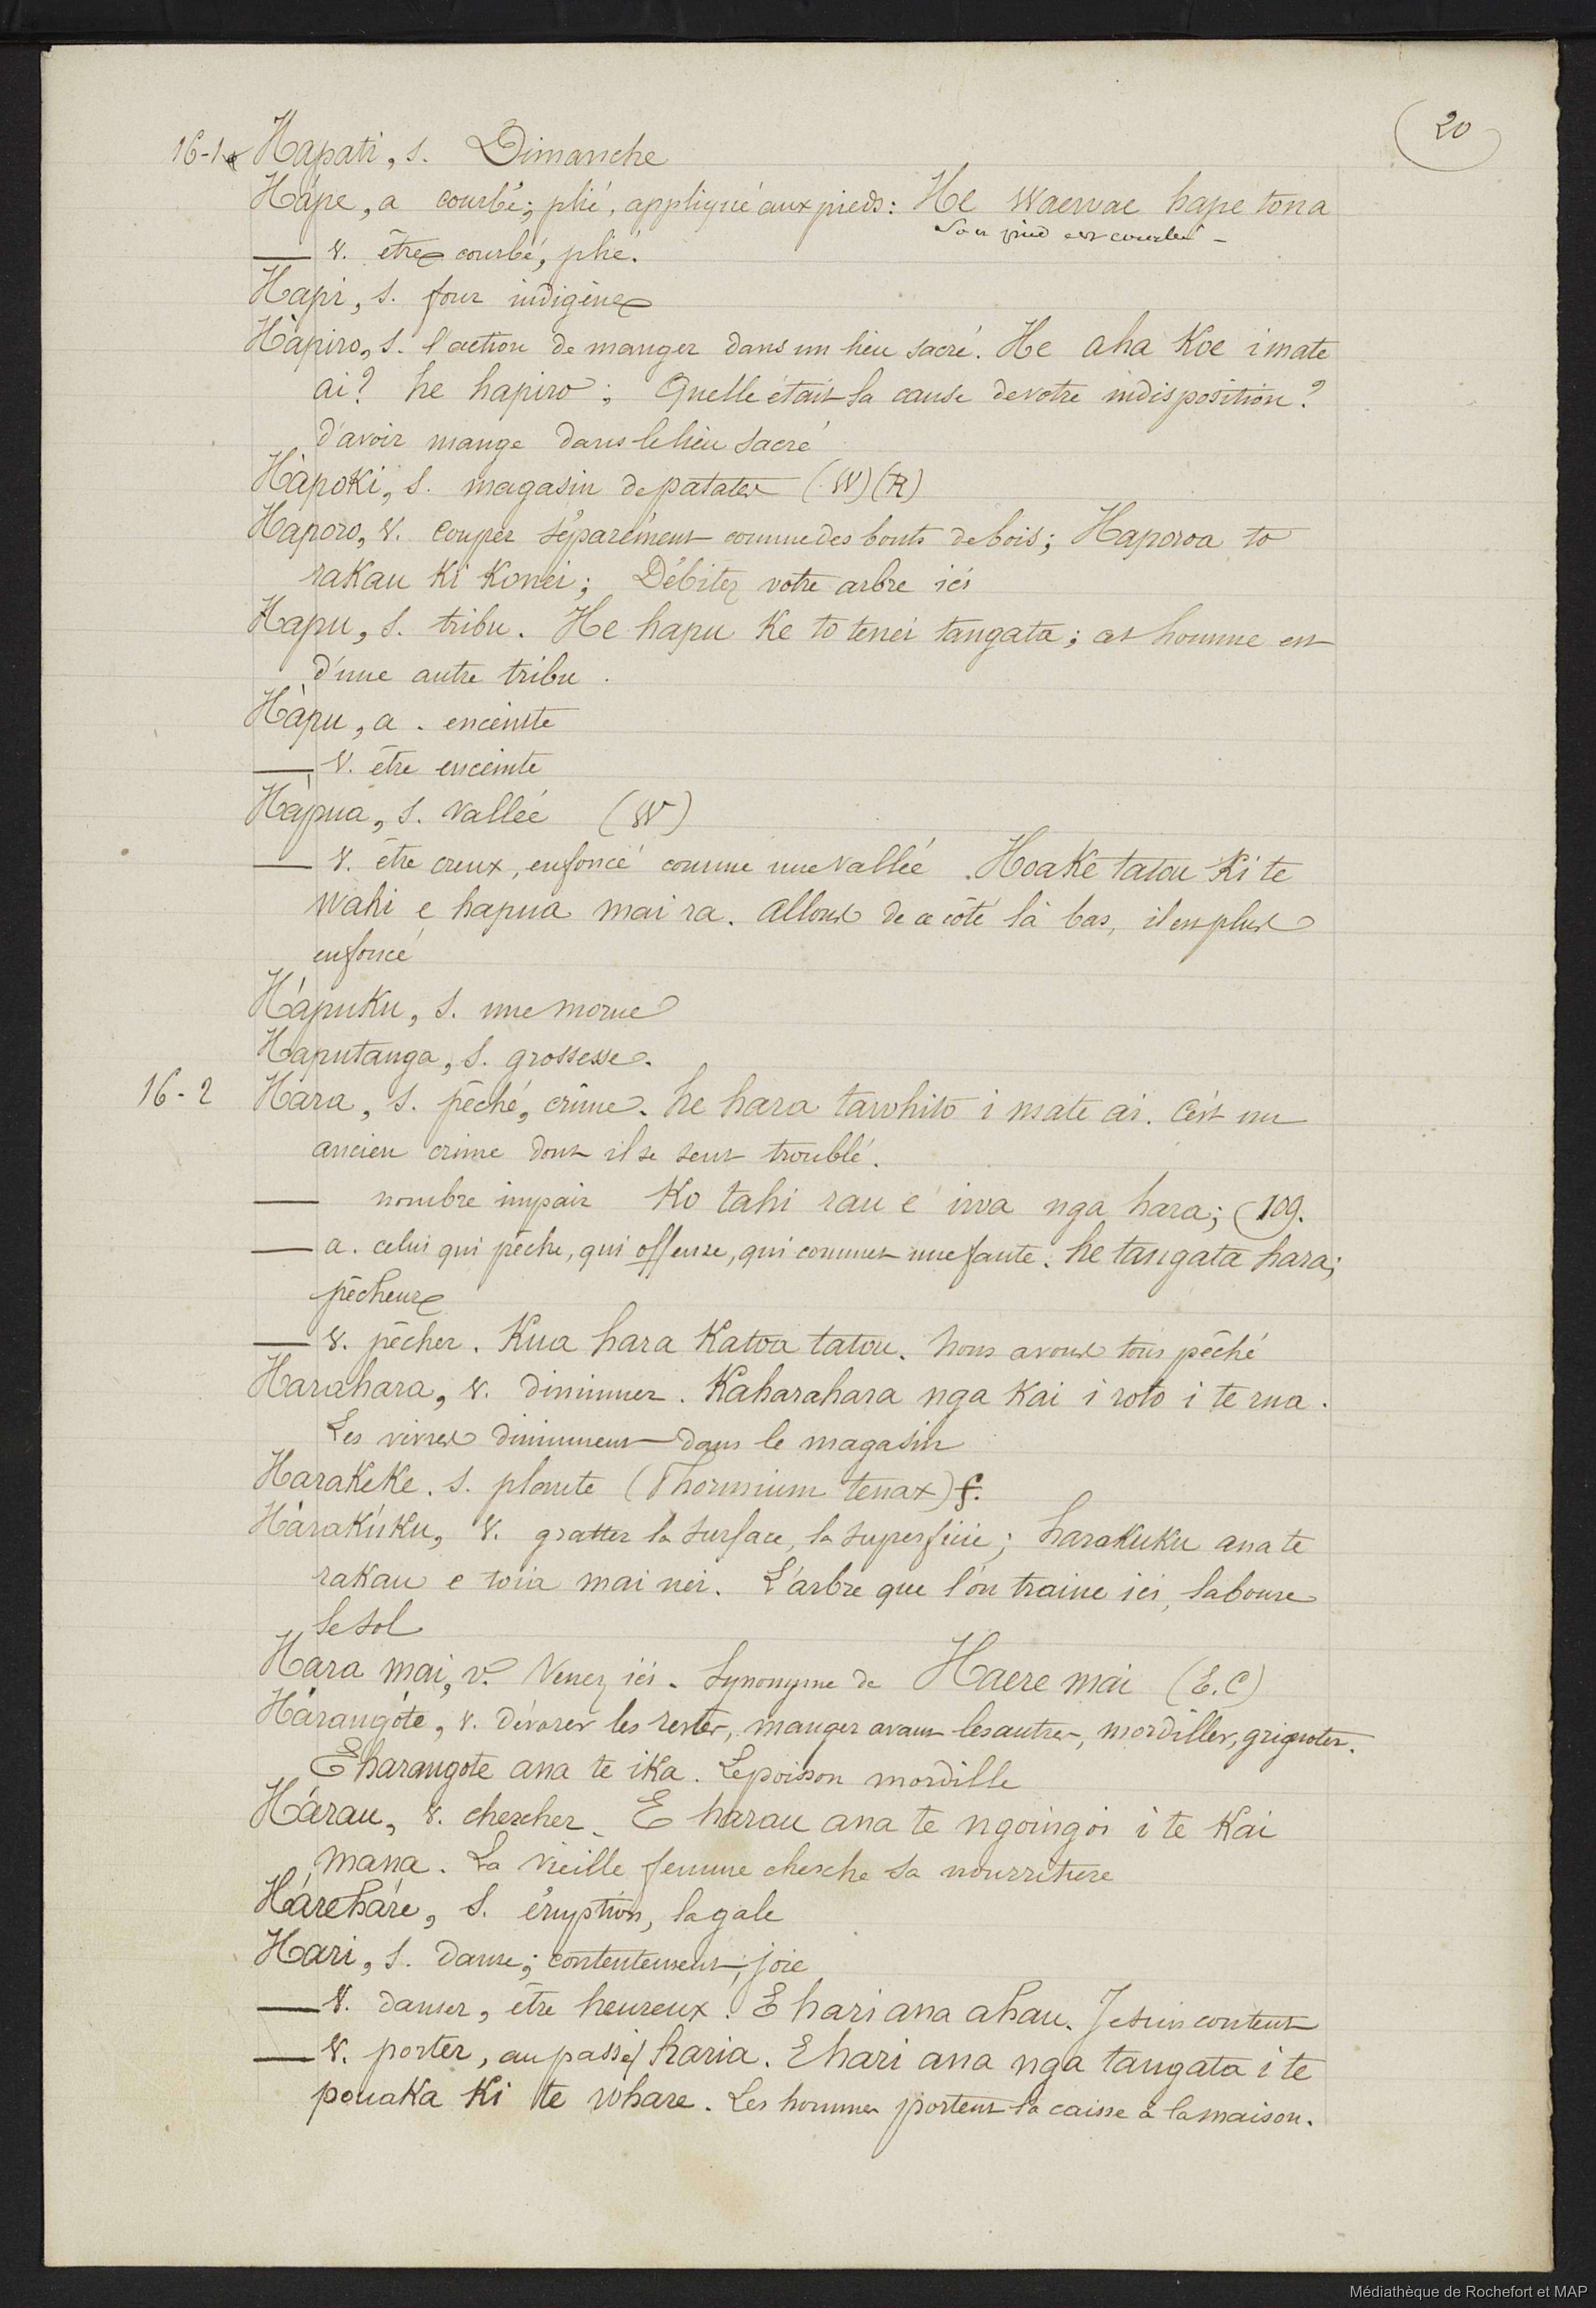 20
16-1 Hapati, s. Dimanche
Hápe, a courbé; plié, appliqué aux pieds: He Waewae hape tona
Son pied est courbé -
— v. être courbé, plié.
Hapi, s. four indigène
Hàpiro, s. l'action de manger dans un lieu sacré. He aha Koe i mate
ai? he hapiro; Quelle était la cause de votre indisposition?
d'avoir mangé dans le lieu sacré
Hàpoki, s. magasin de patates (W) (R)
Haporo, v. couper séparément comme des bouts de bois; Haporoa to
rakau Ki Konei; Débitez votre arbre ici
Hapu, s. tribu. He hapu Ke to tenei tangata; cet homme est
d'une autre tribu.
Hàpu, a. enceinte
— v. être enceinte
Hàpua, s. vallée (W)
— v. être creux, enfoncé comme une vallée. Hoake tatou Ki te
wahi e hapua mai ra. Allons de ce côté là bas, il est plus
enfoncé
Hápuku, s. une morue
Haputanga, s. grossesse.
16-2 Hara, s. péché, crime. he hara tawhito i mate ai. C'est un
ancien crime dont il se sent troublé.
— nombre impair Ko tahi rau e iwa nga hara; (109.
— a. celui qui pèche, qui offense, qui commet une faute. he tangata hara;
pécheur
— v. pécher. Kua hara Katoa tatou. Nous avons tous péché
Harahara, v. diminuer. Kaharahara nga Kai i roto i te rua.
Les vivres diminuent dans le magasin
HaraKeKe. s. plante (Phormium tenax) f.
HàraKúKu, v. gratter la surface, la superficie; haraKuKu ana te
rakau e toia mai nei. L'arbre que l'on traine ici, laboure
le sol
Hara mai, v. Venez ici. Synonyme de Haere mai (E.C)
Hárangóte, v. dévorer les restes, manger avant les autres, mordiller, grignoter.
E harangote ana te iKa. Le poisson mordille
Hárau, v. chercher. E harau ana te ngoingoi i te Kai
mana. La vieille femme cherche sa nourriture
Hárehàre, s. éruption, la gale
Hari, s. Danse; contentement; joie
— v. danser, être heureux. E hari ana ahau. Je suis content
— v. porter, au passif haria. E hari ana nga tangata i te
pouaKa Ki te whare. Les hommes portent la caisse à la maison.
Médiathèque de Rochefort et MAP